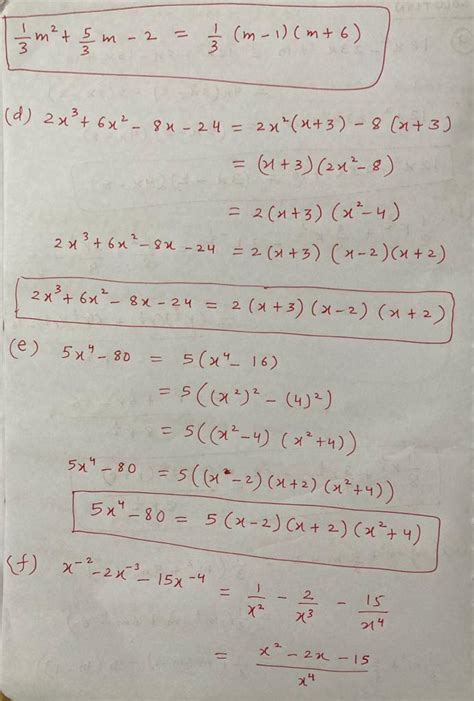 1/3 m² + 5/3 m - 2 = 1/3 (m-1)(m+6)
(d) 2x³ + 6x² - 8x - 24 = 2x²(x+3) - 8(x+3)
= (x+3)(2x²-8)
= 2(x+3)(x²-4)
2x³+6x²-8x-24 = 2(x+3)(x-2)(x+2)
2x³+6x²-8x-24 = 2(x+3)(x-2)(x+2)
(e) 5x⁴-80 = 5(x⁴-16)
= 5((x²)²-(4)²)
= 5((x²-4)(x²+4))
5x⁴-80 = 5((x-2)(x+2)(x²+4))
5x⁴-80 = 5(x-2)(x+2)(x²+4)
(f) x⁻²-2x⁻³-15x⁻⁴ = 1/x² - 2/x³ - 15/x⁴
= x²-2x-15 / x⁴